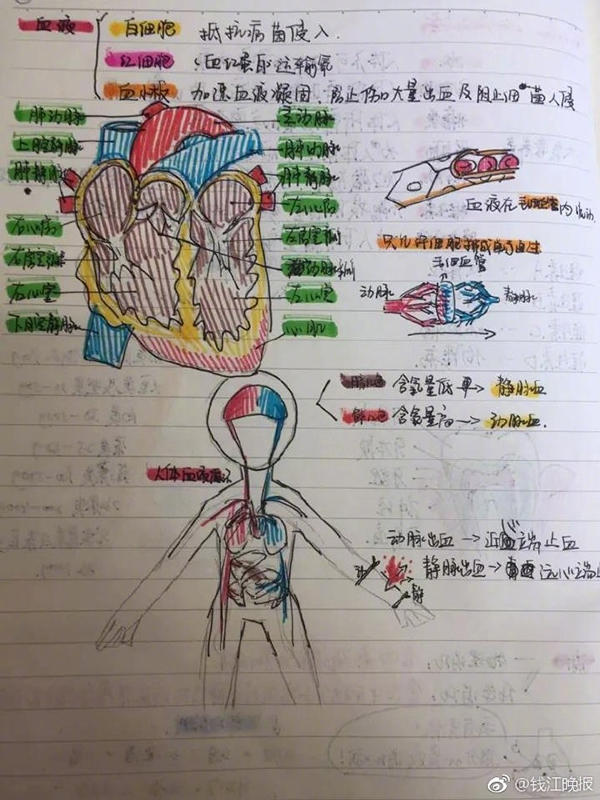 血液
白细胞 抵抗病菌侵入
红细胞 血红蛋白运输氧
血小板 加速血液凝固,防止伤口大量出血及阻止细菌入侵
肺动脉 主动脉
上腔静脉 肺动脉
肺静脉 肺静脉
右心房 左心房
右房室瓣 左房室瓣
动脉瓣
右心室 左心室
下腔静脉 心肌
血液在 内流动
只允许红细胞排成单行通过
毛细血管
动脉 静脉
暗红色 含氧量低 → 静脉血
鲜红色 含氧量高 → 动脉血.
人体血液循环
动脉出血 → 近心端止血
静脉出血 → 远心端止
动
静
@钱江晚报